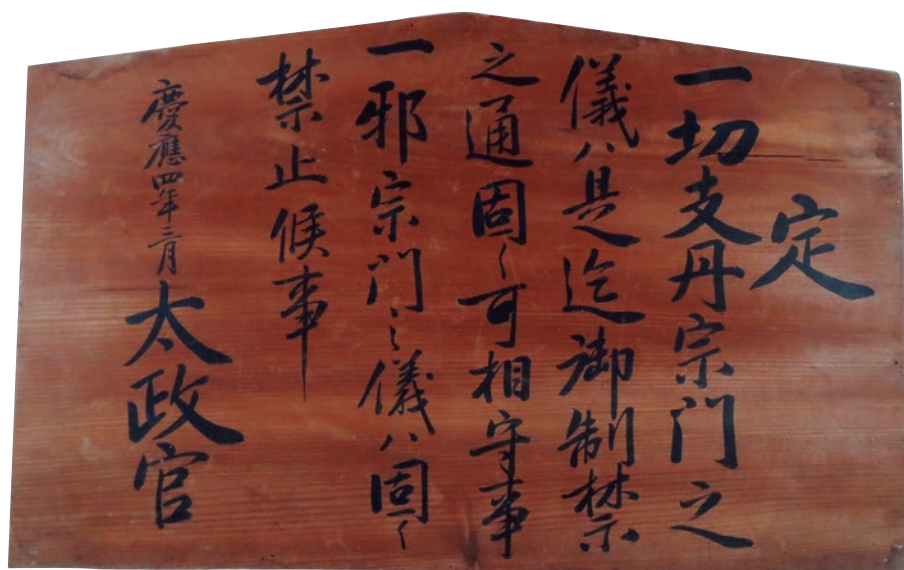 定
一切支丹宗門之
儀八是迄御制禁
之通固く可相守事
一邪宗門之儀八固く
禁止候事
慶應四年三月
太政官